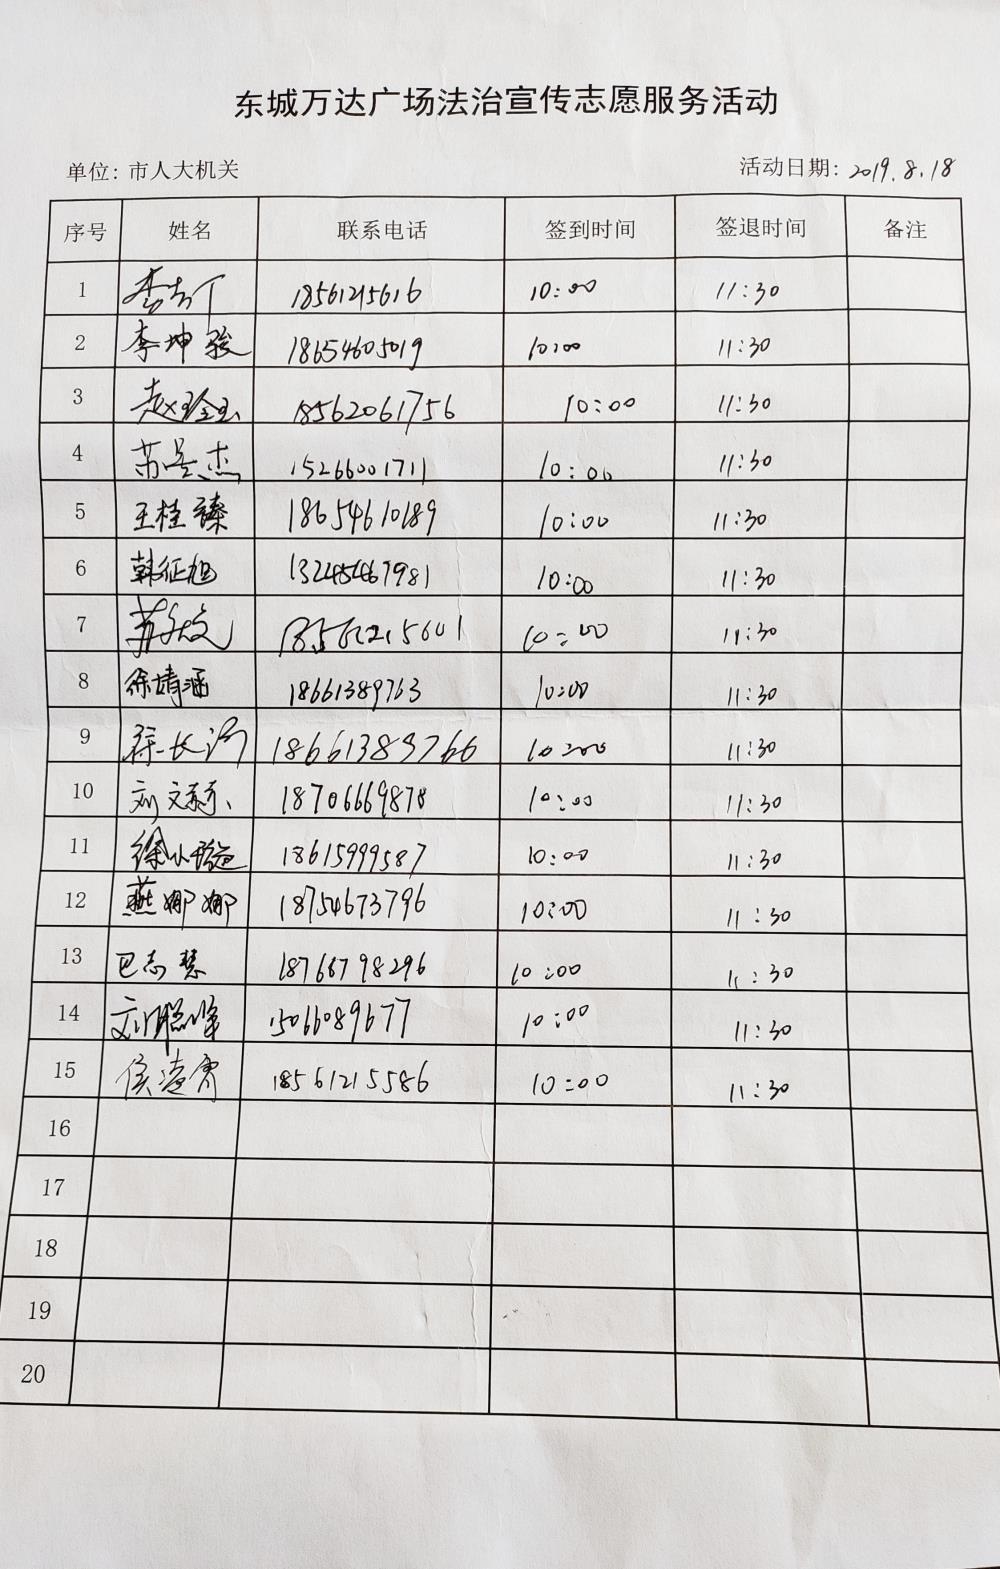 东城万达广场法治宣传志愿服务活动
单位：市人大机关 活动日期：2019.8.18
序号 姓名 联系电话 签到时间 签退时间 备注
1 18561215616 10:00 11:30
2 李坤骏 18654605019 10:00 11:30
3 18562061756 10:00 11:30
4 苏昊杰 15266001711 10:00 11:30
5 王桂臻 18654610189 10:00 11:30
6 韩征旭 10:00 11:30
7 18561215601 10:00 11:30
8 徐靖涵 18661389763 10:00 11:30
9 18661389766 10:00 11:30
10 18706669878 10:00 11:30
11 18615999587 10:00 11:30
12 燕娜娜 18754673796 10:00 11:30
13 巴志慧 18768798296 10:00 11:30
14 15066089677 10:00 11:30
15 18561215586 10:00 11:30
16
17
18
19
20